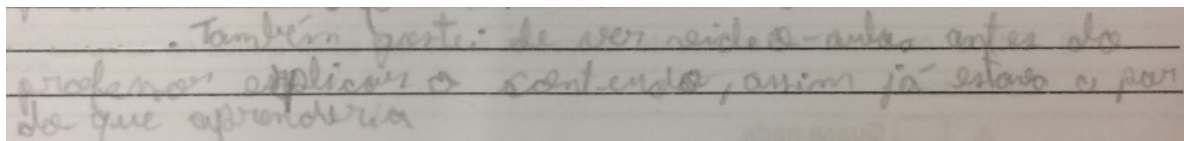 . Também gostei de ver veideo-aulas antes do
professor explicar o conteudo, assim já estava a par
do que aprenderia